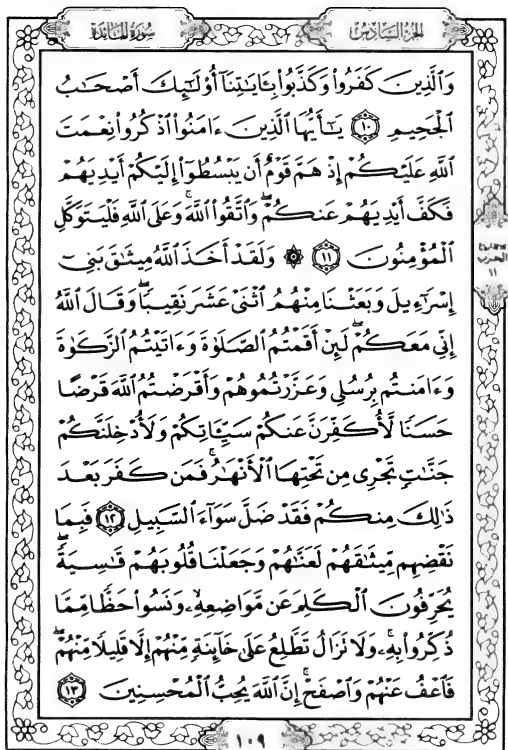 الجزء السادس
سورة المائدة
وَٱلَّذِينَ كَفَرُوا۟ وَكَذَّبُوا۟ بِـَٔايَٰتِنَآ أُو۟لَٰٓئِكَ أَصْحَٰبُ
ٱلْجَحِيمِ ١٠ يَٰٓأَيُّهَا ٱلَّذِينَ ءَامَنُوا۟ ٱذْكُرُوا۟ نِعْمَتَ
ٱللَّهِ عَلَيْكُمْ إِذْ هَمَّ قَوْمٌ أَن يَبْسُطُوٓا۟ إِلَيْكُمْ أَيْدِيَهُمْ
فَكَفَّ أَيْدِيَهُمْ عَنكُمْ ۖ وَٱتَّقُوا۟ ٱللَّهَ ۚ وَعَلَى ٱللَّهِ فَلْيَتَوَكَّلِ
ٱلْمُؤْمِنُونَ ١١ ۞ وَلَقَدْ أَخَذَ ٱللَّهُ مِيثَٰقَ بَنِىٓ
إِسْرَٰٓءِيلَ وَبَعَثْنَا مِنْهُمُ ٱثْنَىْ عَشَرَ نَقِيبًا ۖ وَقَالَ ٱللَّهُ
إِنِّى مَعَكُمْ ۖ لَئِنْ أَقَمْتُمُ ٱلصَّلَوٰةَ وَءَاتَيْتُمُ ٱلزَّكَوٰةَ
وَءَامَنتُم بِرُسُلِى وَعَزَّرْتُمُوهُمْ وَأَقْرَضْتُمُ ٱللَّهَ قَرْضًا
حَسَنًا لَّأُكَفِّرَنَّ عَنكُمْ سَيِّـَٔاتِكُمْ وَلَأُدْخِلَنَّكُمْ
جَنَّٰتٍ تَجْرِى مِن تَحْتِهَا ٱلْأَنْهَٰرُ ۚ فَمَن كَفَرَ بَعْدَ
ذَٰلِكَ مِنكُمْ فَقَدْ ضَلَّ سَوَآءَ ٱلسَّبِيلِ ١٢ فَبِمَا
نَقْضِهِم مِّيثَٰقَهُمْ لَعَنَّٰهُمْ وَجَعَلْنَا قُلُوبَهُمْ قَٰسِيَةً ۖ
يُحَرِّفُونَ ٱلْكَلِمَ عَن مَّوَاضِعِهِۦ ۙ وَنَسُوا۟ حَظًّا مِّمَّا
ذُكِّرُوا۟ بِهِۦ ۚ وَلَا تَزَالُ تَطَّلِعُ عَلَىٰ خَآئِنَةٍ مِّنْهُمْ إِلَّا قَلِيلًا مِّنْهُمْ ۖ
فَٱعْفُ عَنْهُمْ وَٱصْفَحْ ۚ إِنَّ ٱللَّهَ يُحِبُّ ٱلْمُحْسِنِينَ ١٣
الحزب
١١
١٠٩